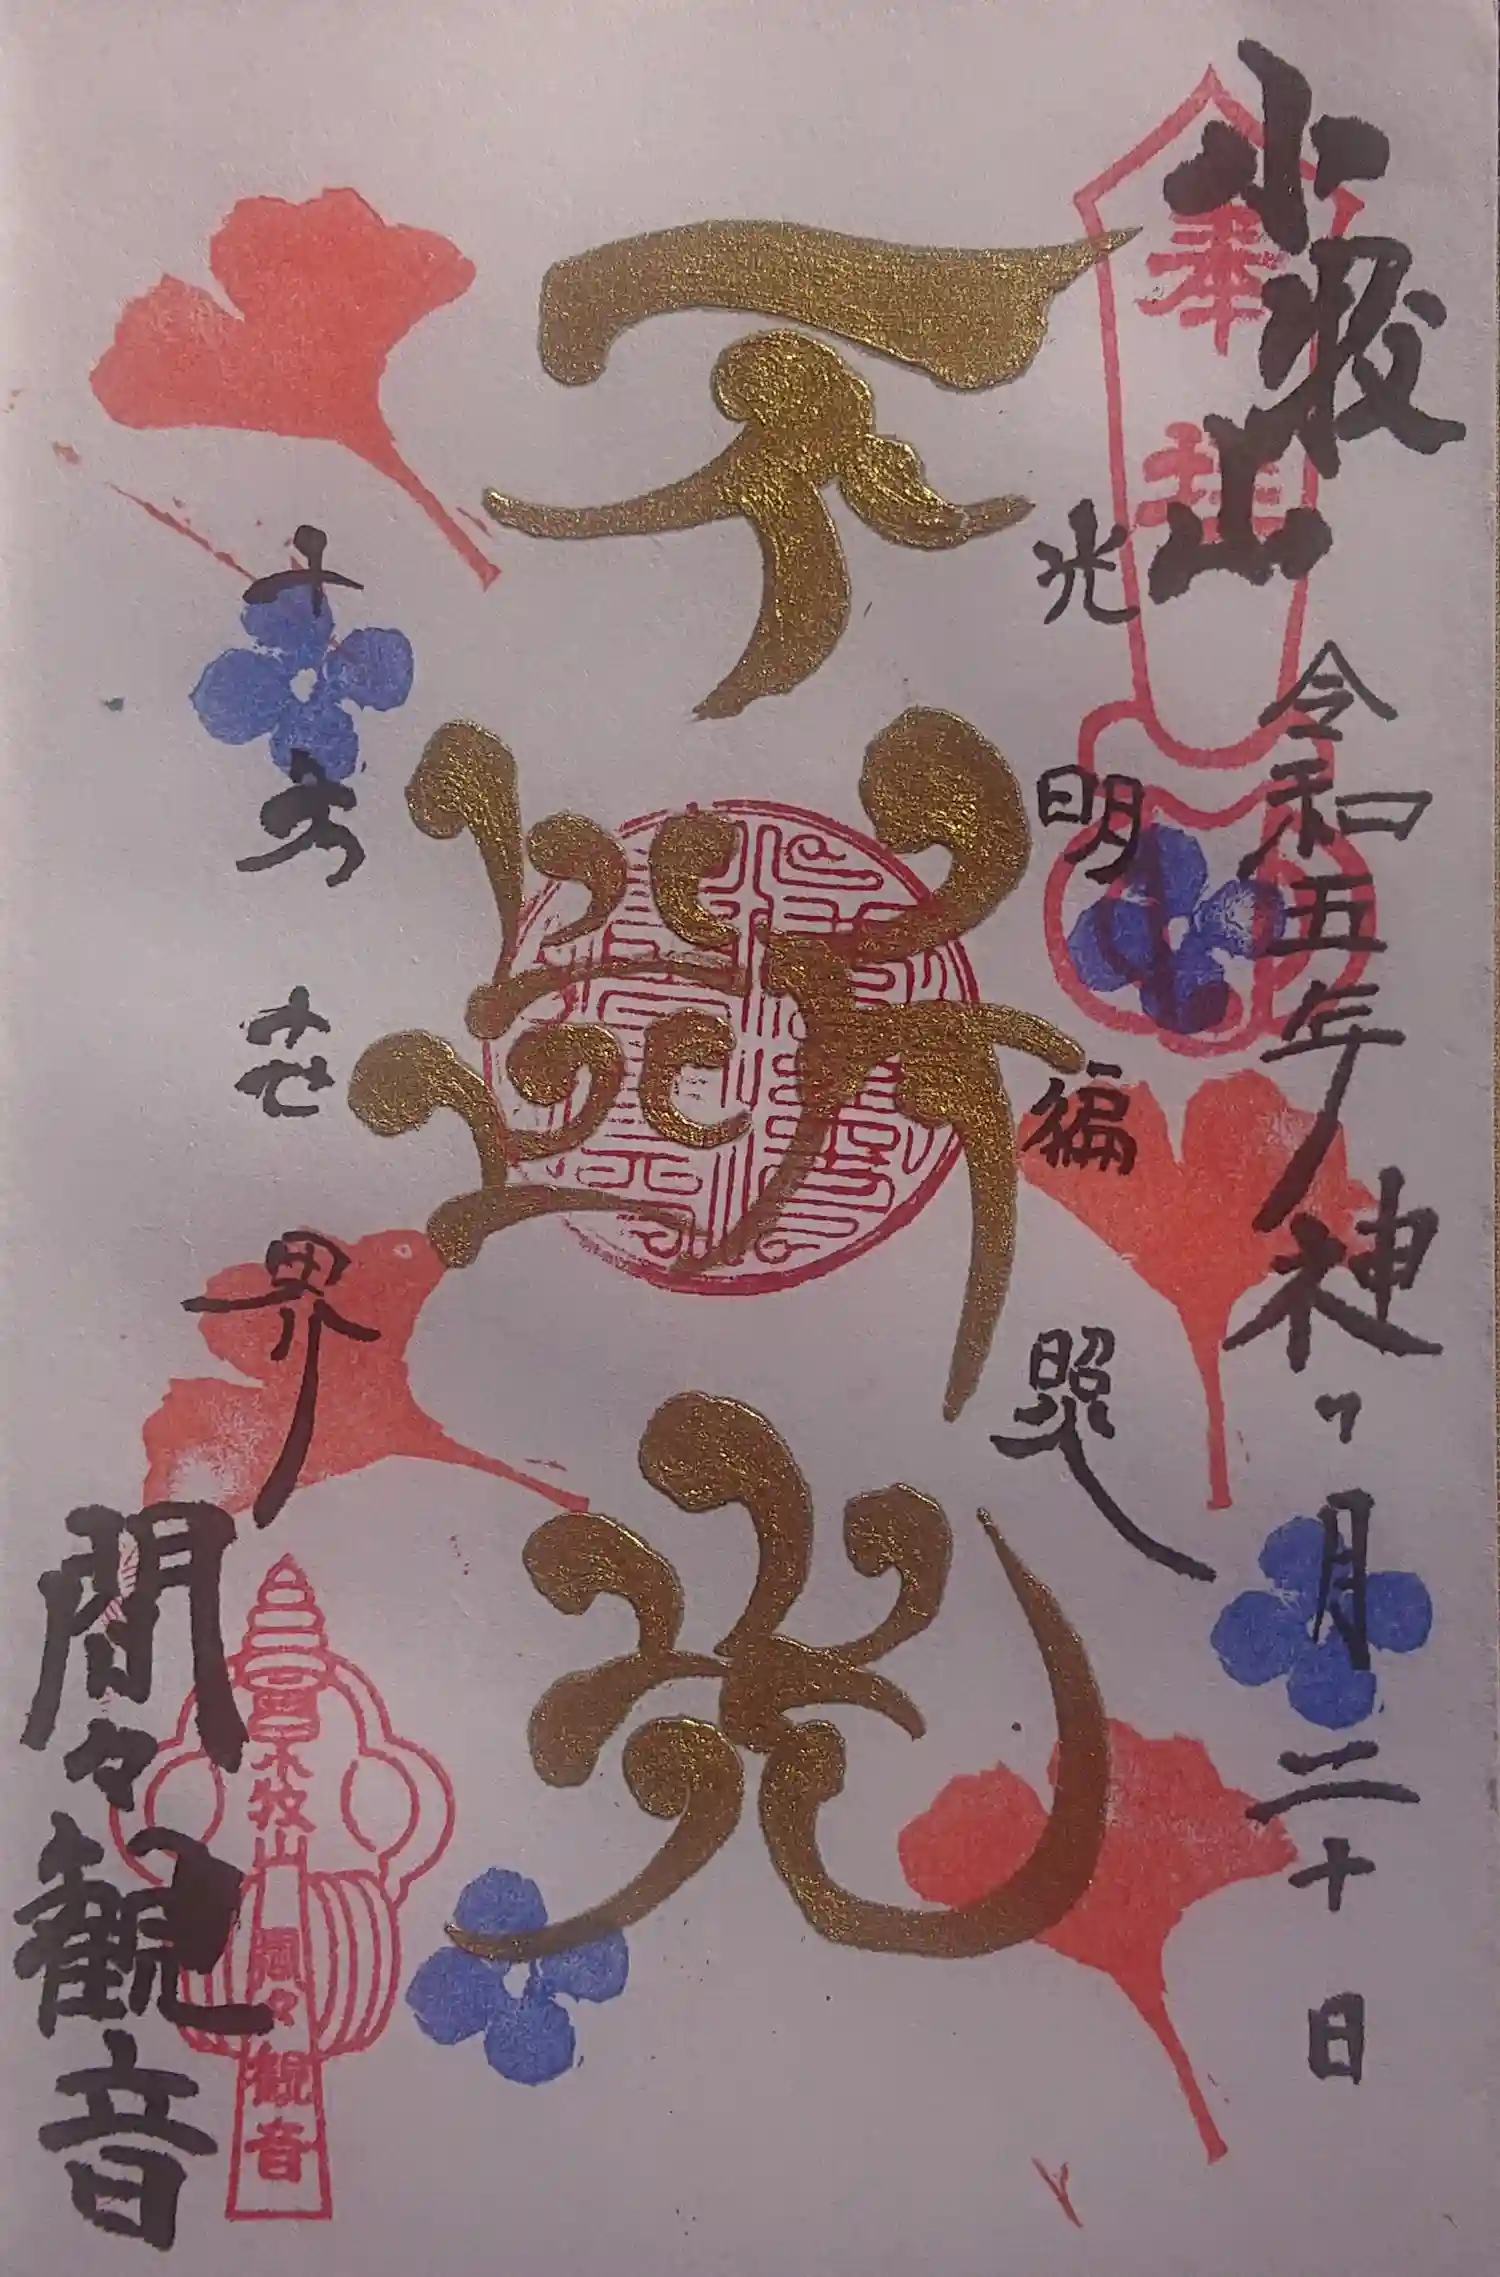 奉拝
小牧山
令和五年神ヶ月二十日
光明編照
不斷光
十方世界
間々観音
小牧山
間々観音